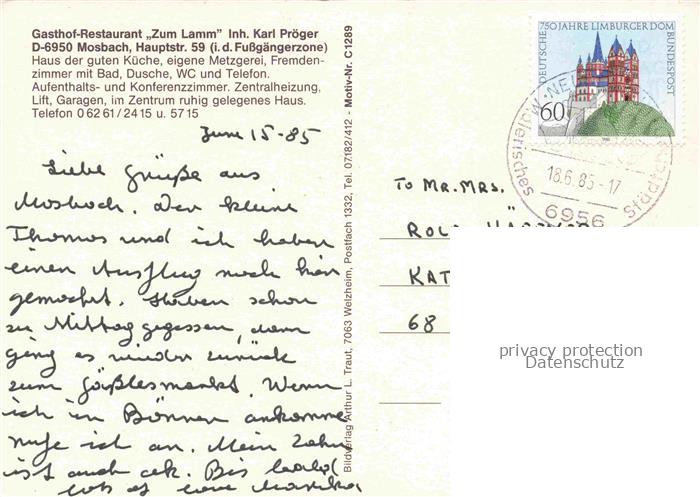 Gasthof-Restaurant „Zum Lamm" Inh. Karl Pröger
D-6950 Mosbach, Hauptstr. 59 (i. d. Fußgängerzone)
Haus der guten Küche, eigene Metzgerei, Fremden-
zimmer mit Bad, Dusche, WC und Telefon.
Aufenthalts- und Konferenzzimmer. Zentralheizung,
Lift, Garagen, im Zentrum ruhig gelegenes Haus.
Telefon 0 62 61 / 24 15 u. 57 15
June 15-85
Liebe Grüße aus
Mosbach. Der kleine
Thomas und ich haben
einen Ausflug nach hier
gemacht. Haben schon
zu Mittag gegessen, dann
ging es wieder zurück
zum Gäßlesmarkt. Wenn
ich in Bönnen ankomme
rufe ich an. Mein Zahn
ist auch ok. Bis bald
lots of love Marika
Bildverlag Arthur L. Traut, 7063 Welzheim, Postfach 1332, Tel. 07182/412 - Motiv-Nr. C1289
DEUTSCHE BUNDESPOST
750 JAHRE LIMBURGER DOM
60
18.6.85-17
6956
malerisches
Städtch
TO MR. MRS.
KAT
68
privacy protection
Datenschutz